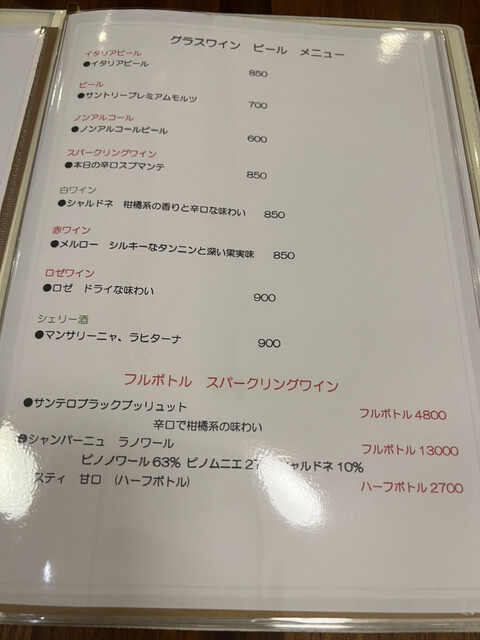 グラスワイン ビール メニュー
イタリアビール
●イタリアビール 850
ビール
●サントリープレミアムモルツ 700
ノンアルコール
●ノンアルコールビール 600
スパークリングワイン
●本日の辛口スプマンテ 850
白ワイン
●シャルドネ 柑橘系の香りと辛口な味わい 850
赤ワイン
●メルロー シルキーなタンニンと深い果実味 850
ロゼワイン
●ロゼ ドライな味わい 900
シェリー酒
●マンサリーニャ、ラヒターナ 900
フルボトル スパークリングワイン
●サンテロブラックブッリュット フルボトル4800
辛口で柑橘系の味わい
●シャンパーニュ ラノワール フルボトル13000
ピノノワール63% ピノムニエ2 ャルドネ10%
スティ 甘口 (ハーフボトル) ハーフボトル2700